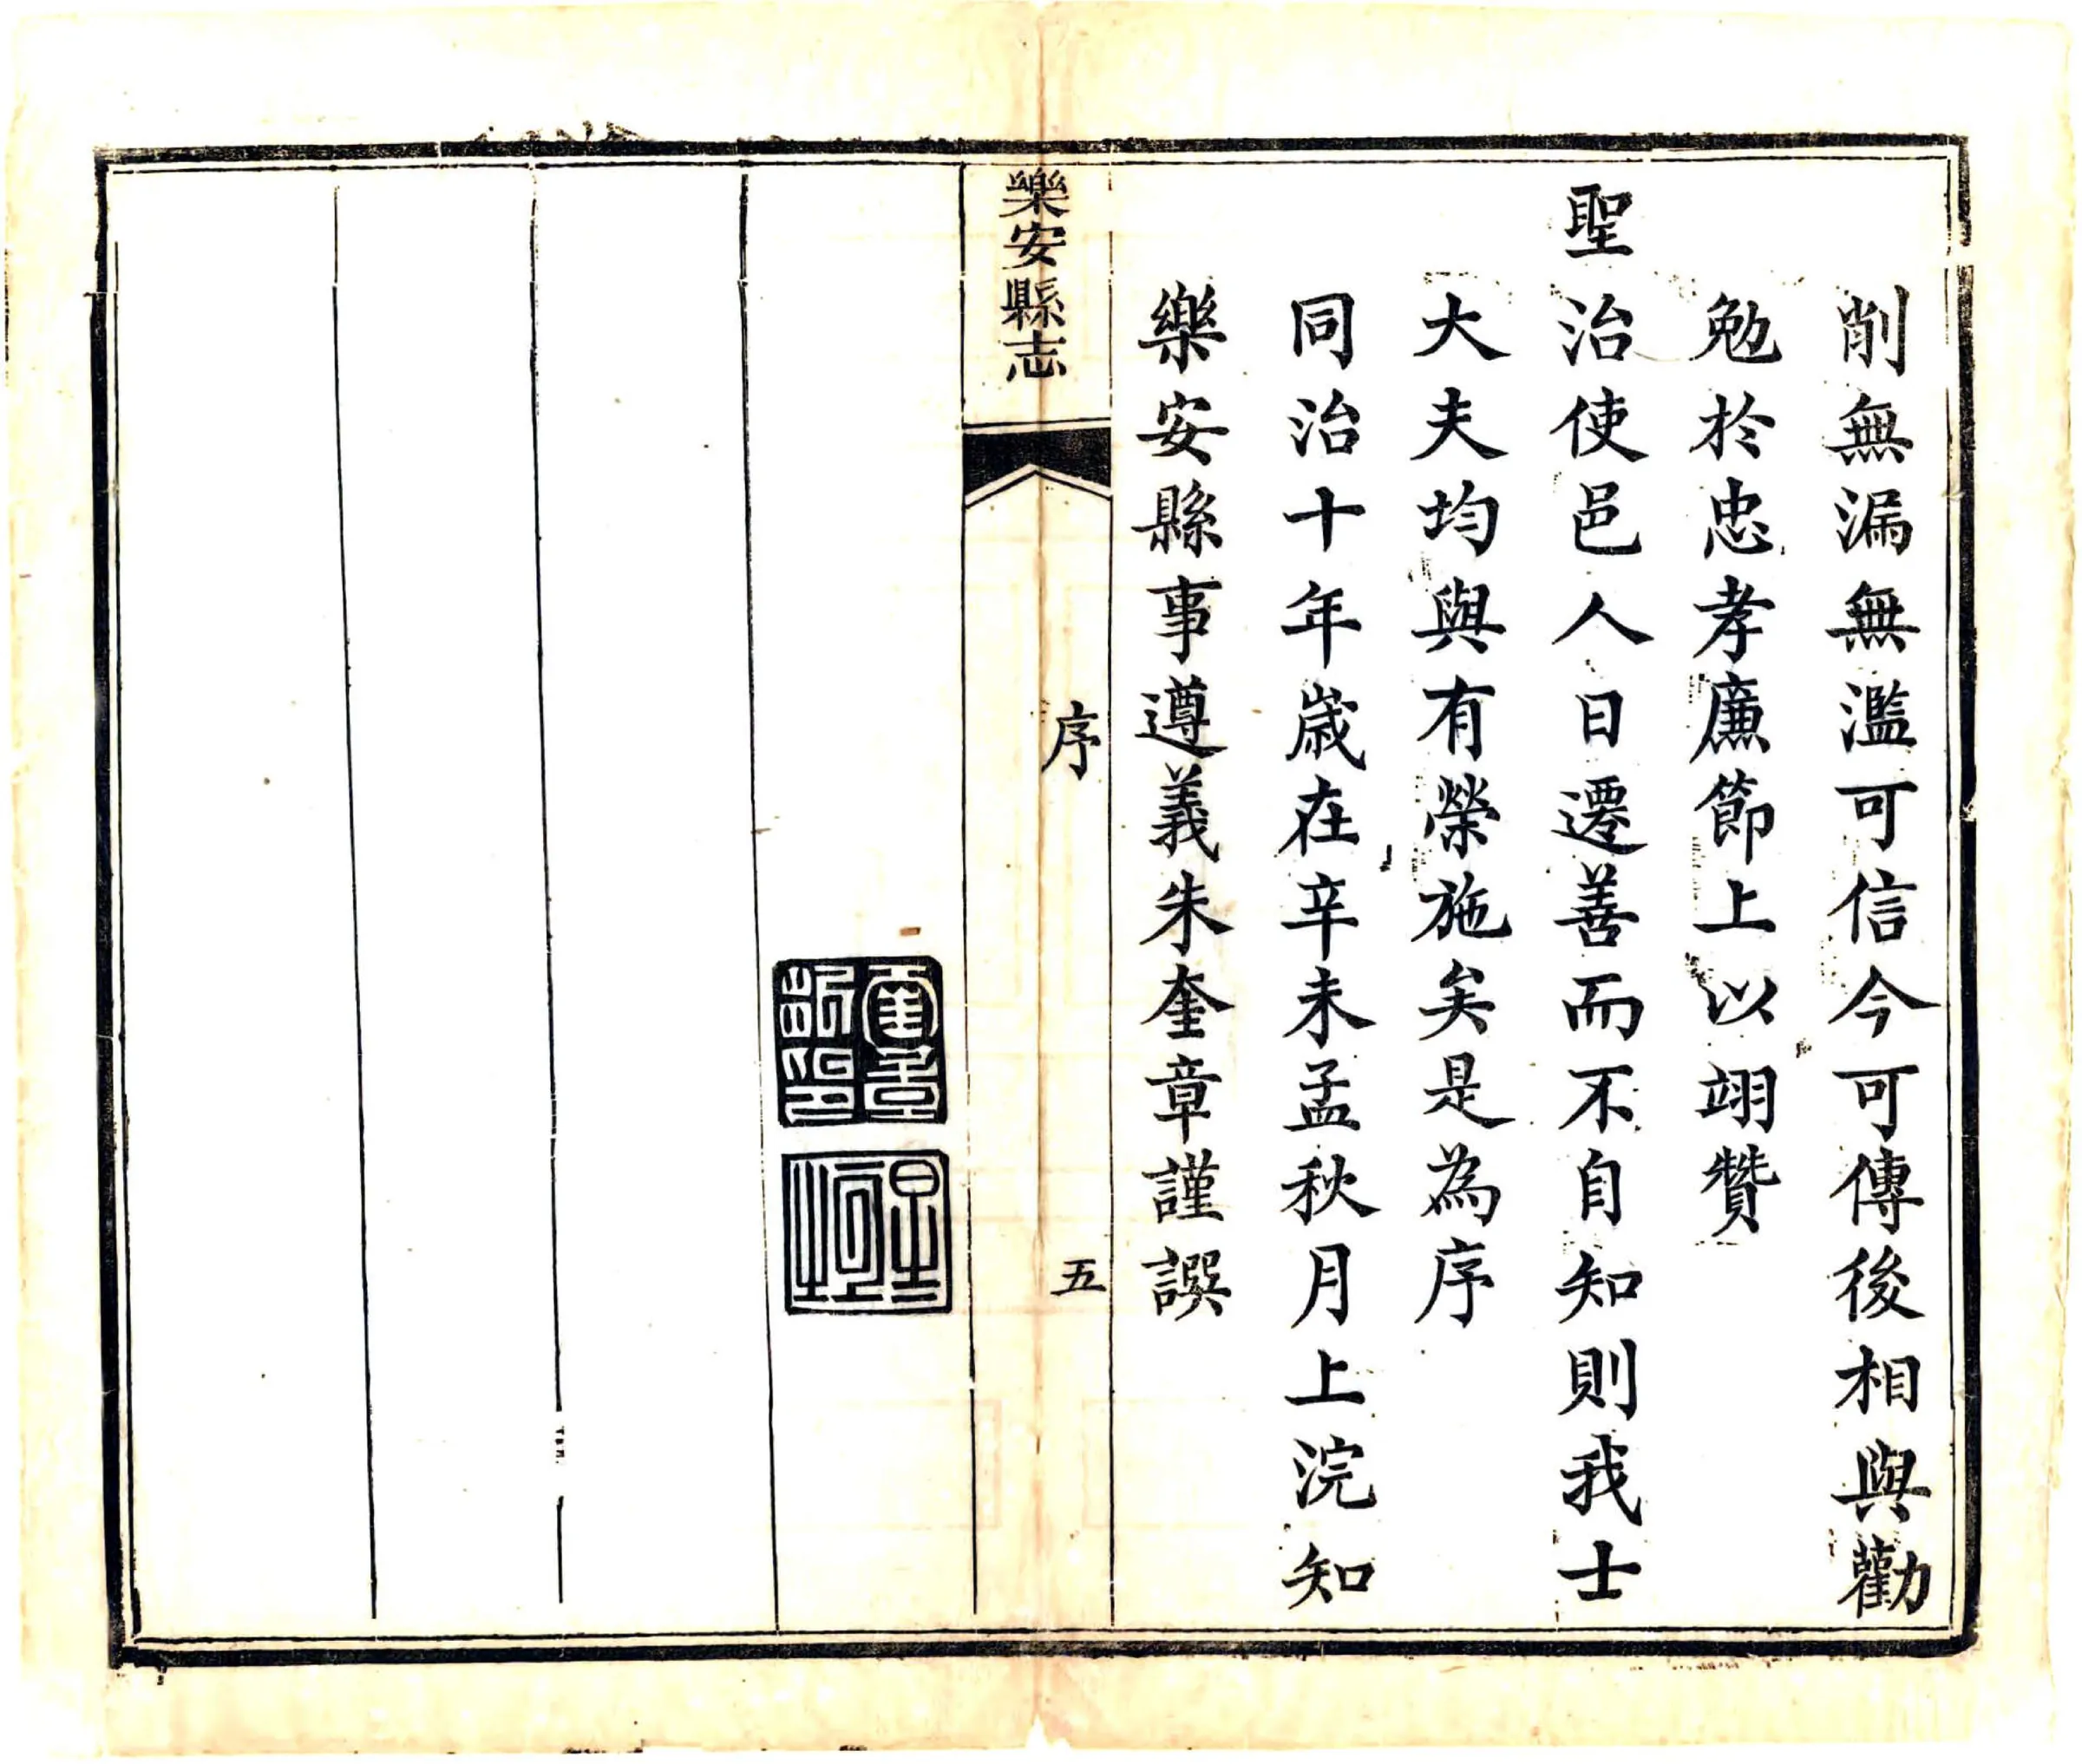 削無漏無濫可信今可傳後相與勸
勉於忠孝廉節上以翊贊
聖治使邑人日遷善而不自知則我士
大夫均與有榮施矣是為序
同治十年歲在辛未孟秋月上浣知
樂安縣事遵義朱奎章謹譔
樂安縣志
序
五